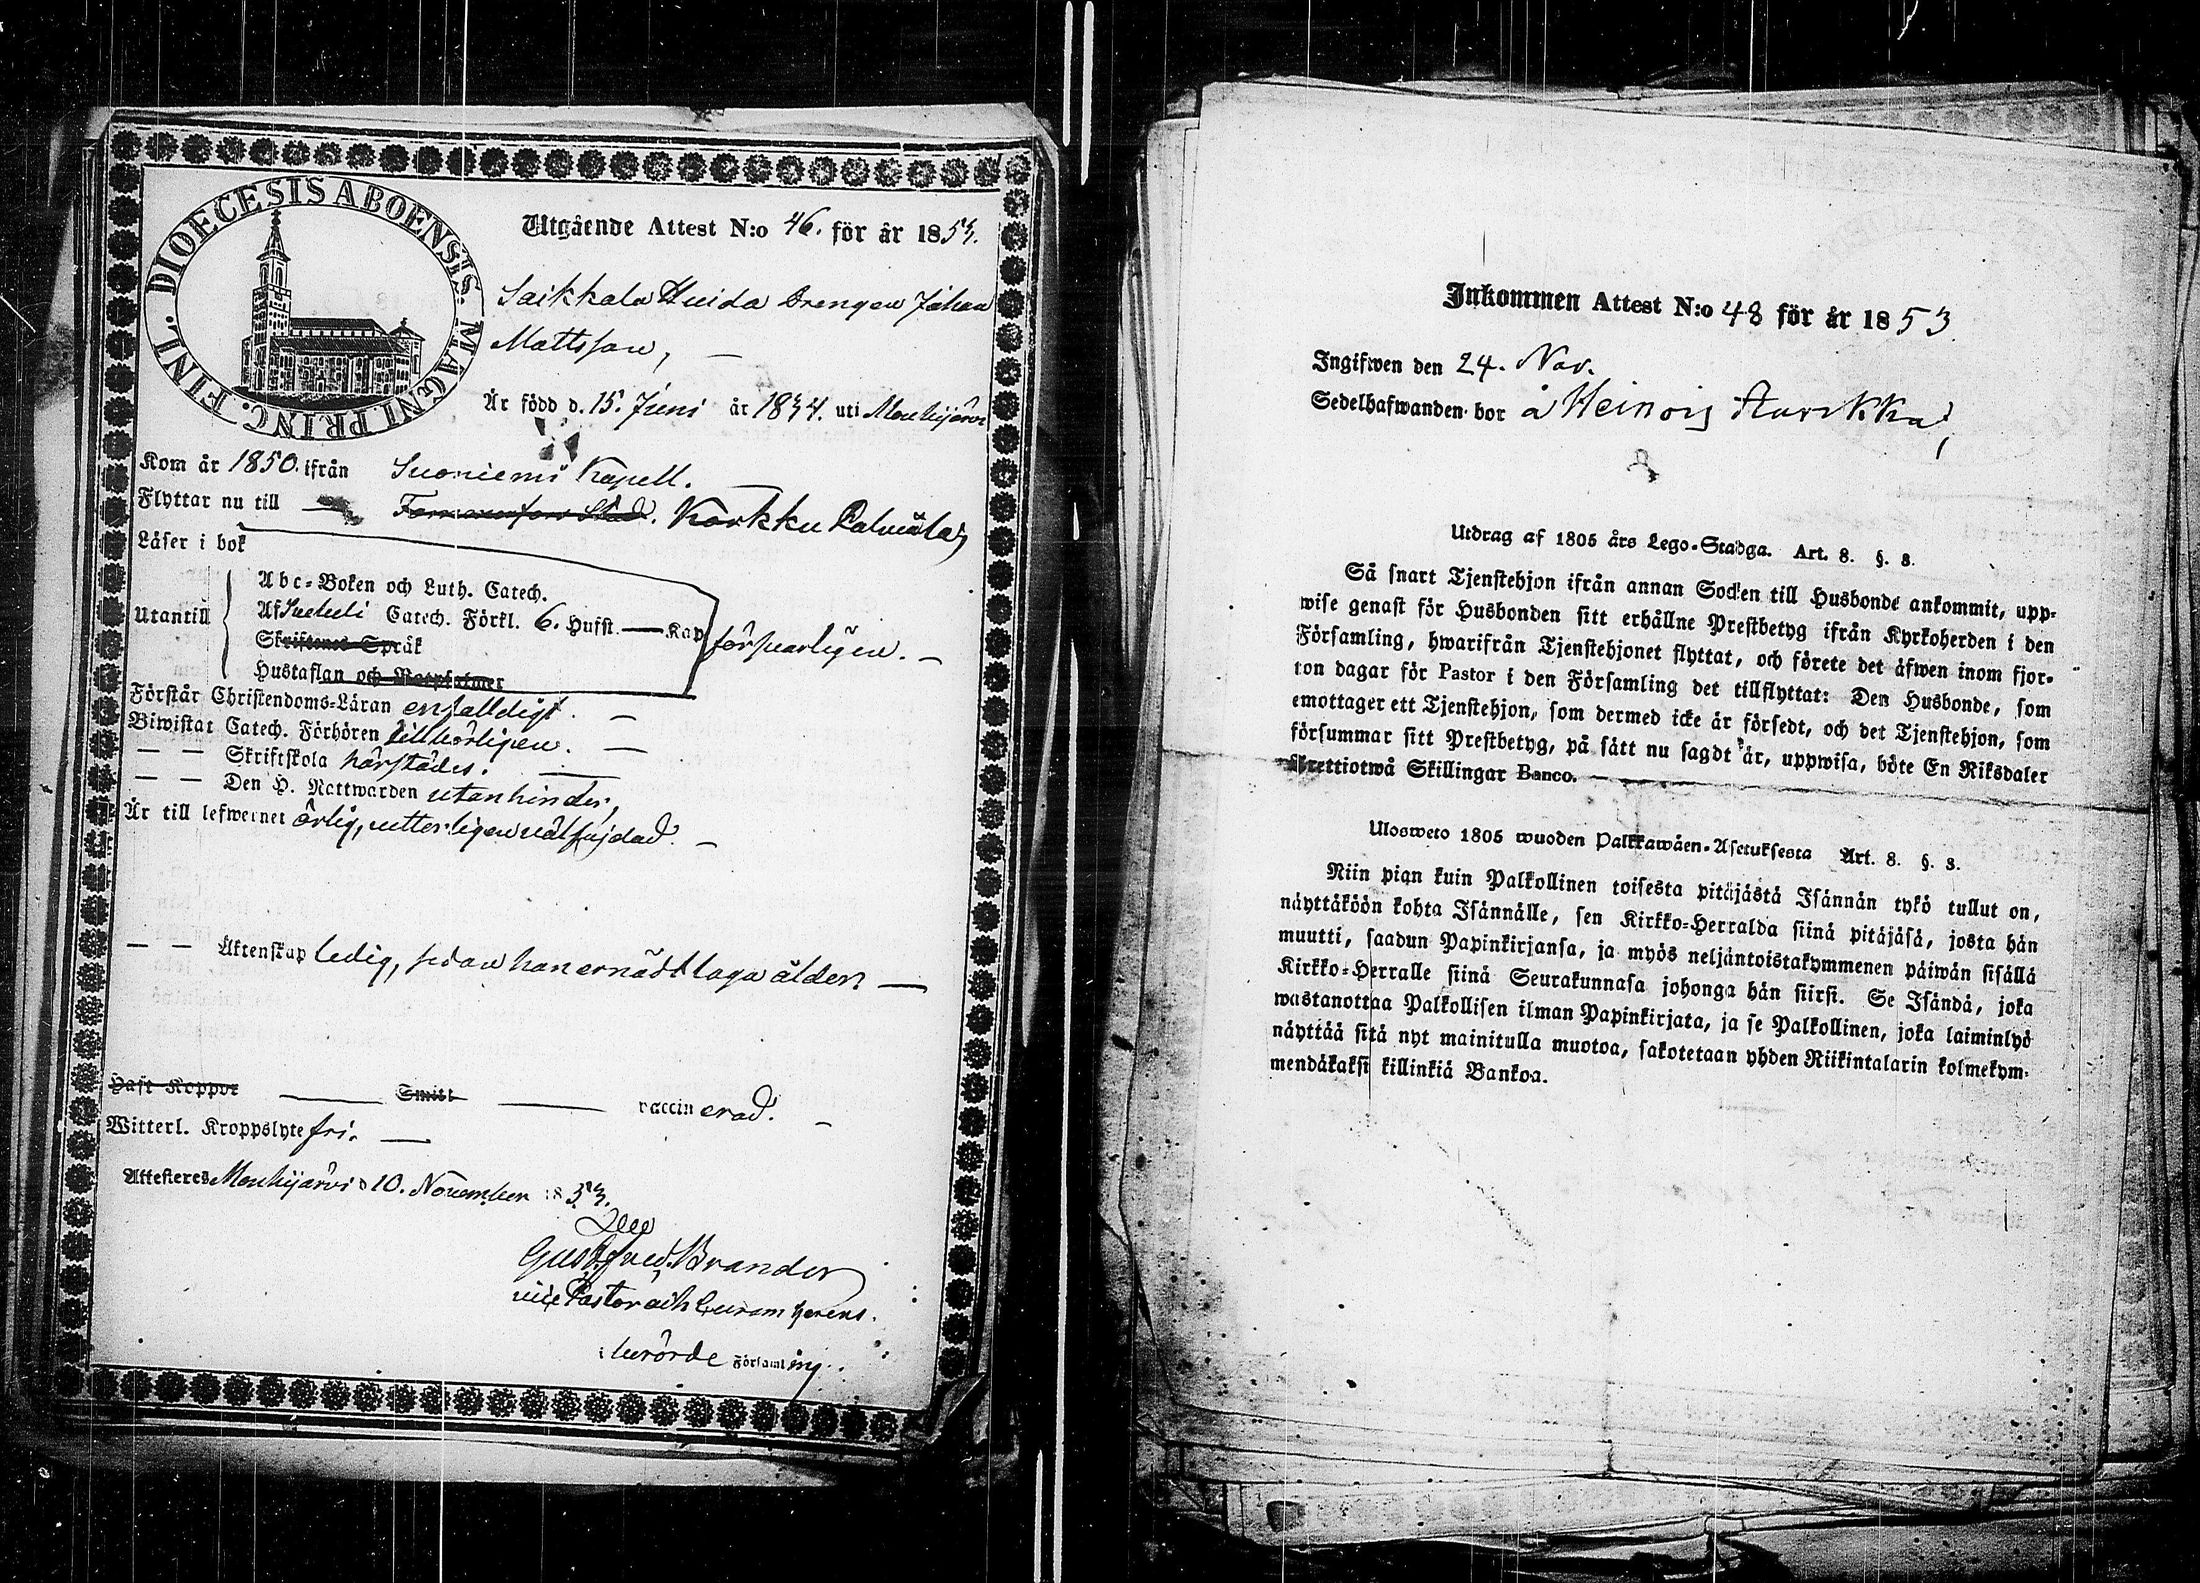 FINL. DIOECESIS ABOENSIS. MAGNI PRINC.
Utgående Attest N:o 46. för år 1853.
Saikkala Huida Drengen Johan
Mattsson, —
Är född d. 15. Juni år 1834. uti Mouhijärvi
Kom år 1850. ifrån Suoniemi Kapell. —
Flyttar nu till — Tammerfors Stad. Karkku Palviala,
Läser i bok
Utantill
Abc-Boken och Luth. Catech.
Af Svebeli Catech. Förkl. 6. Hufst. — Kap
Skriftenes Språk
Hustaflan och Botpsalmer
försvarligen. —
Förstår Christendoms-Läran enfalldigt. —
Biwistat Catech. Förhören tillbörligen. —
— — Skriftskola härstädes. —
— — Den H. Nattwarden utan hinder,
Är till lefwernet ärlig, vitterligen välfrejdad. —
— — Äktenskap ledig, sedan han ernådt laga ålder. —
Haft Koppor — Smitt — vaccinerad. —
Witterl. Kroppslyte fri. —
Attesteres Mouhijärvi d 10. November 1853.
Gust. Fred. Brander
vice Pastor och Curam gerens.
i berörde Församling.
Inkommen Attest N:o 48 för år 1853.
Ingifwen den 24. Nov.
Sedelhafwanden bor å Heinois Starckka,
Utdrag af 1805 års Lego-Stadga. Art. 8. §. 8.
Så snart Tjenstehjon ifrån annan Socken till Husbonde ankommit, upp-
wise genast för Husbonden sitt erhållne Prestbetyg ifrån Kyrkoherden i den
Församling, hwarifrån Tjenstehjonet flyttat, och förete det äfwen inom fjor-
ton dagar för Pastor i den Församling det tillflyttat: Den Husbonde, som
emottager ett Tjenstehjon, som dermed icke är försedt, och det Tjenstehjon, som
försummar sitt Prestbetyg, på sätt nu sagdt är, uppwisa, böte En Riksdaler
trettiotwå Skillingar Banco.
Ulosweto 1805 wuoden Palkkawäen-Asetuksesta Art. 8. §. 8.
Niin pian kuin Palkollinen toisesta pitäjästä Isännän tykö tullut on,
näyttäköön kohta Isännälle, sen Kirkko-Herralda siinä pitäjäsä, josta hän
muutti, saadun Papinkirjansa, ja myös neljäntoistakymmenen päiwän sisällä
Kirkko-Herralle siinä Seurakunnasa johonga hän siirsi. Se Isändä, joka
wastanottaa Palkollisen ilman Papinkirjata, ja se Palkollinen, joka laiminlyö
näyttää sitä nyt mainitulla muotoa, sakotetaan yhden Riikintalarin kolmekym-
mendäkaksi killinkiä Bankoa.